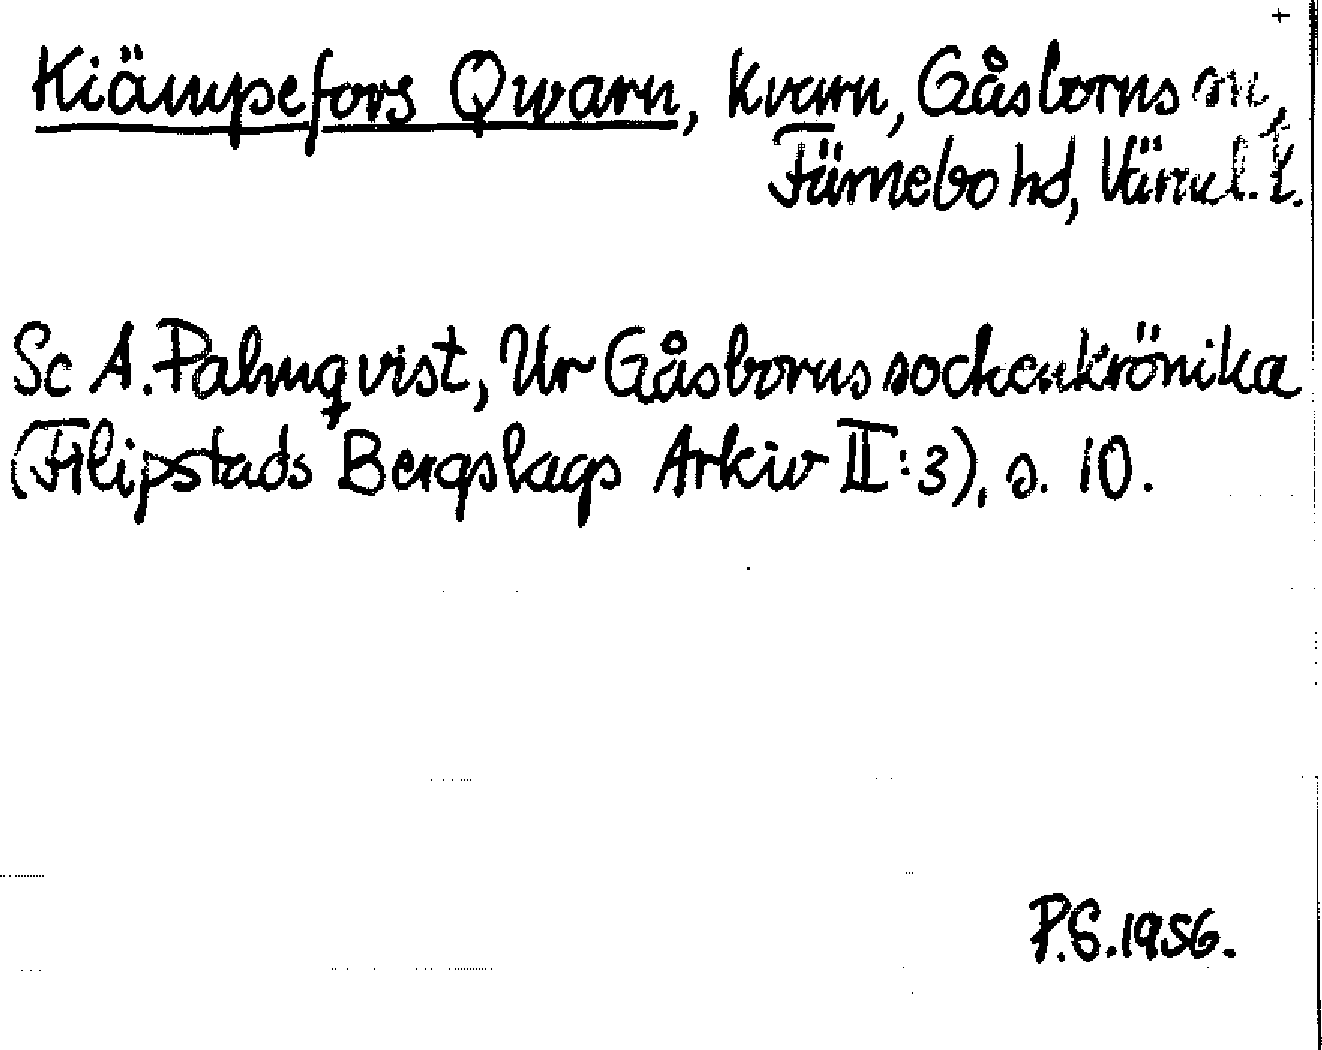 Kiämpefors Qwarn, Kvarn, Gåsborns sn,
Färnebo hd, Värml. l.
Sc A. Palmqvist, Ur Gåsborns sockenkrönika
(Filipstads Bergslags Arkiv II:3), s. 10.
P.S. 1956.